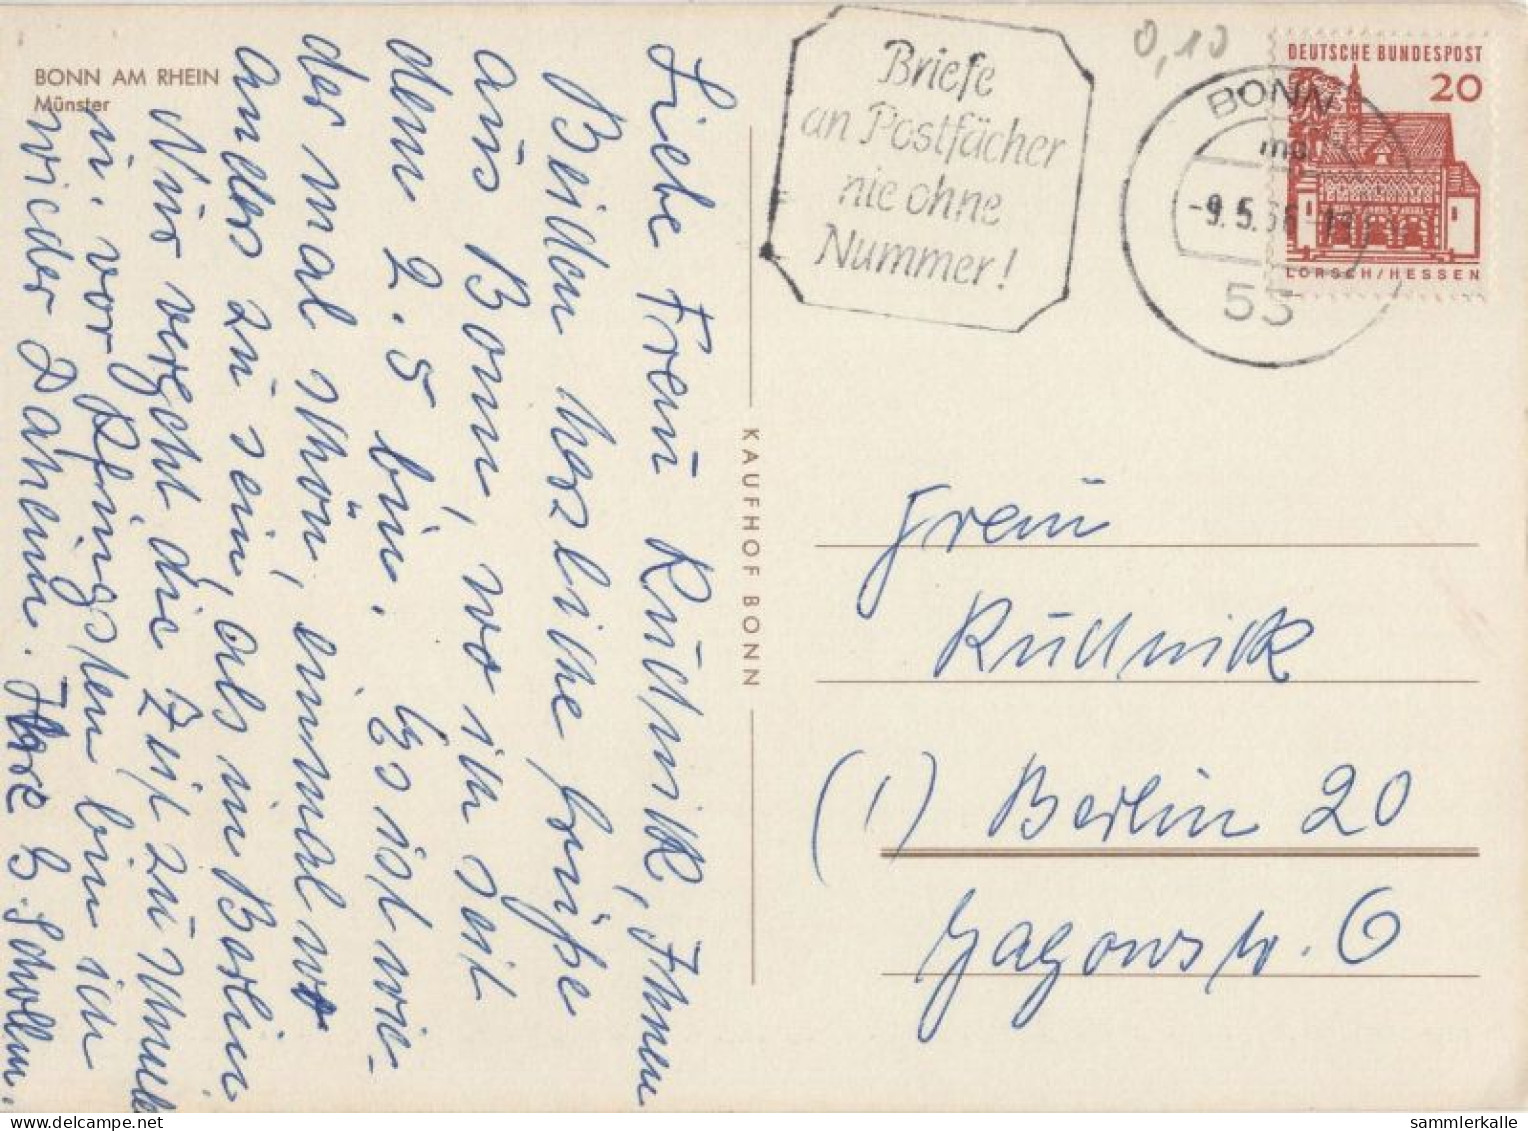 BONN AM RHEIN
Münster
Liebe Frau Rudnik, Ihnen
Beiden herzliche Grüße
aus Bonn, wo ich seit
dem 2. 5 bin. Es ist wie-
der mal schön, einmal wo
anders zu sein, als in Berlin
Nur vergeht die Zeit zu schnell
u. vor Pfingsten bin ich
wieder Daheim. Ihre E. Schollm.
KAUFHOF BONN
Briefe
an Postfächer
nie ohne
Nummer!
0,10
BONN
-9. 5. 66
55
DEUTSCHE BUNDESPOST
20
LORSCH/HESSEN
Frau
Rudnik
(1) Berlin 20
Jagowstr. 6
sammlerkalle